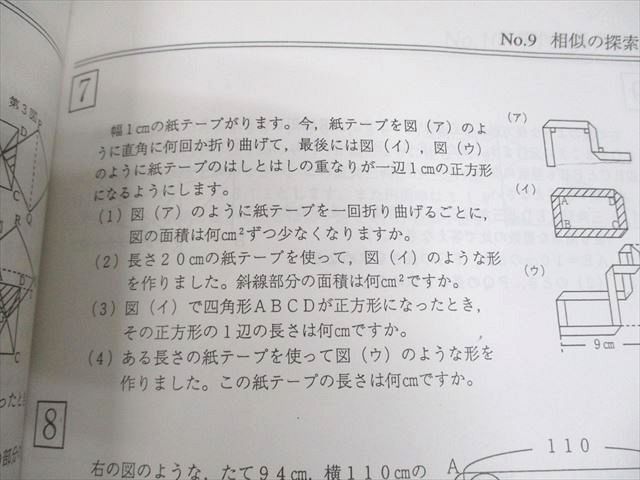 No.9 相似の探索
7
幅1cmの紙テープがります。今，紙テープを図（ア）のよ
うに直角に何回か折り曲げて，最後には図（イ），図（ウ）
のように紙テープのはしとはしの重なりが一辺1cmの正方形
になるようにします。
(1) 図（ア）のように紙テープを一回折り曲げるごとに，
図の面積は何cm²ずつ少なくなりますか。
(2) 長さ20cmの紙テープを使って，図（イ）のような形
を作りました。斜線部分の面積は何cm²ですか。
(3) 図（イ）で四角形ABCDが正方形になったとき，
その正方形の1辺の長さは何cmですか。
(4) ある長さの紙テープを使って図（ウ）のような形を
作りました。この紙テープの長さは何cmですか。
(ア)
(イ)
A
B
(ウ)
9cm
8
右の図のような，たて94cm，横110cmの
A
110
第3図
D
C
R
Q
C
ったとき